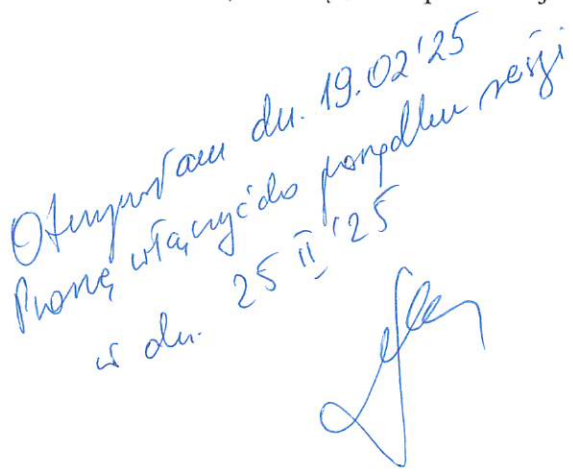 Otrzymałam dn. 19.02'25
Proszę włączyć do porządku sesji
w dn. 25 II '25